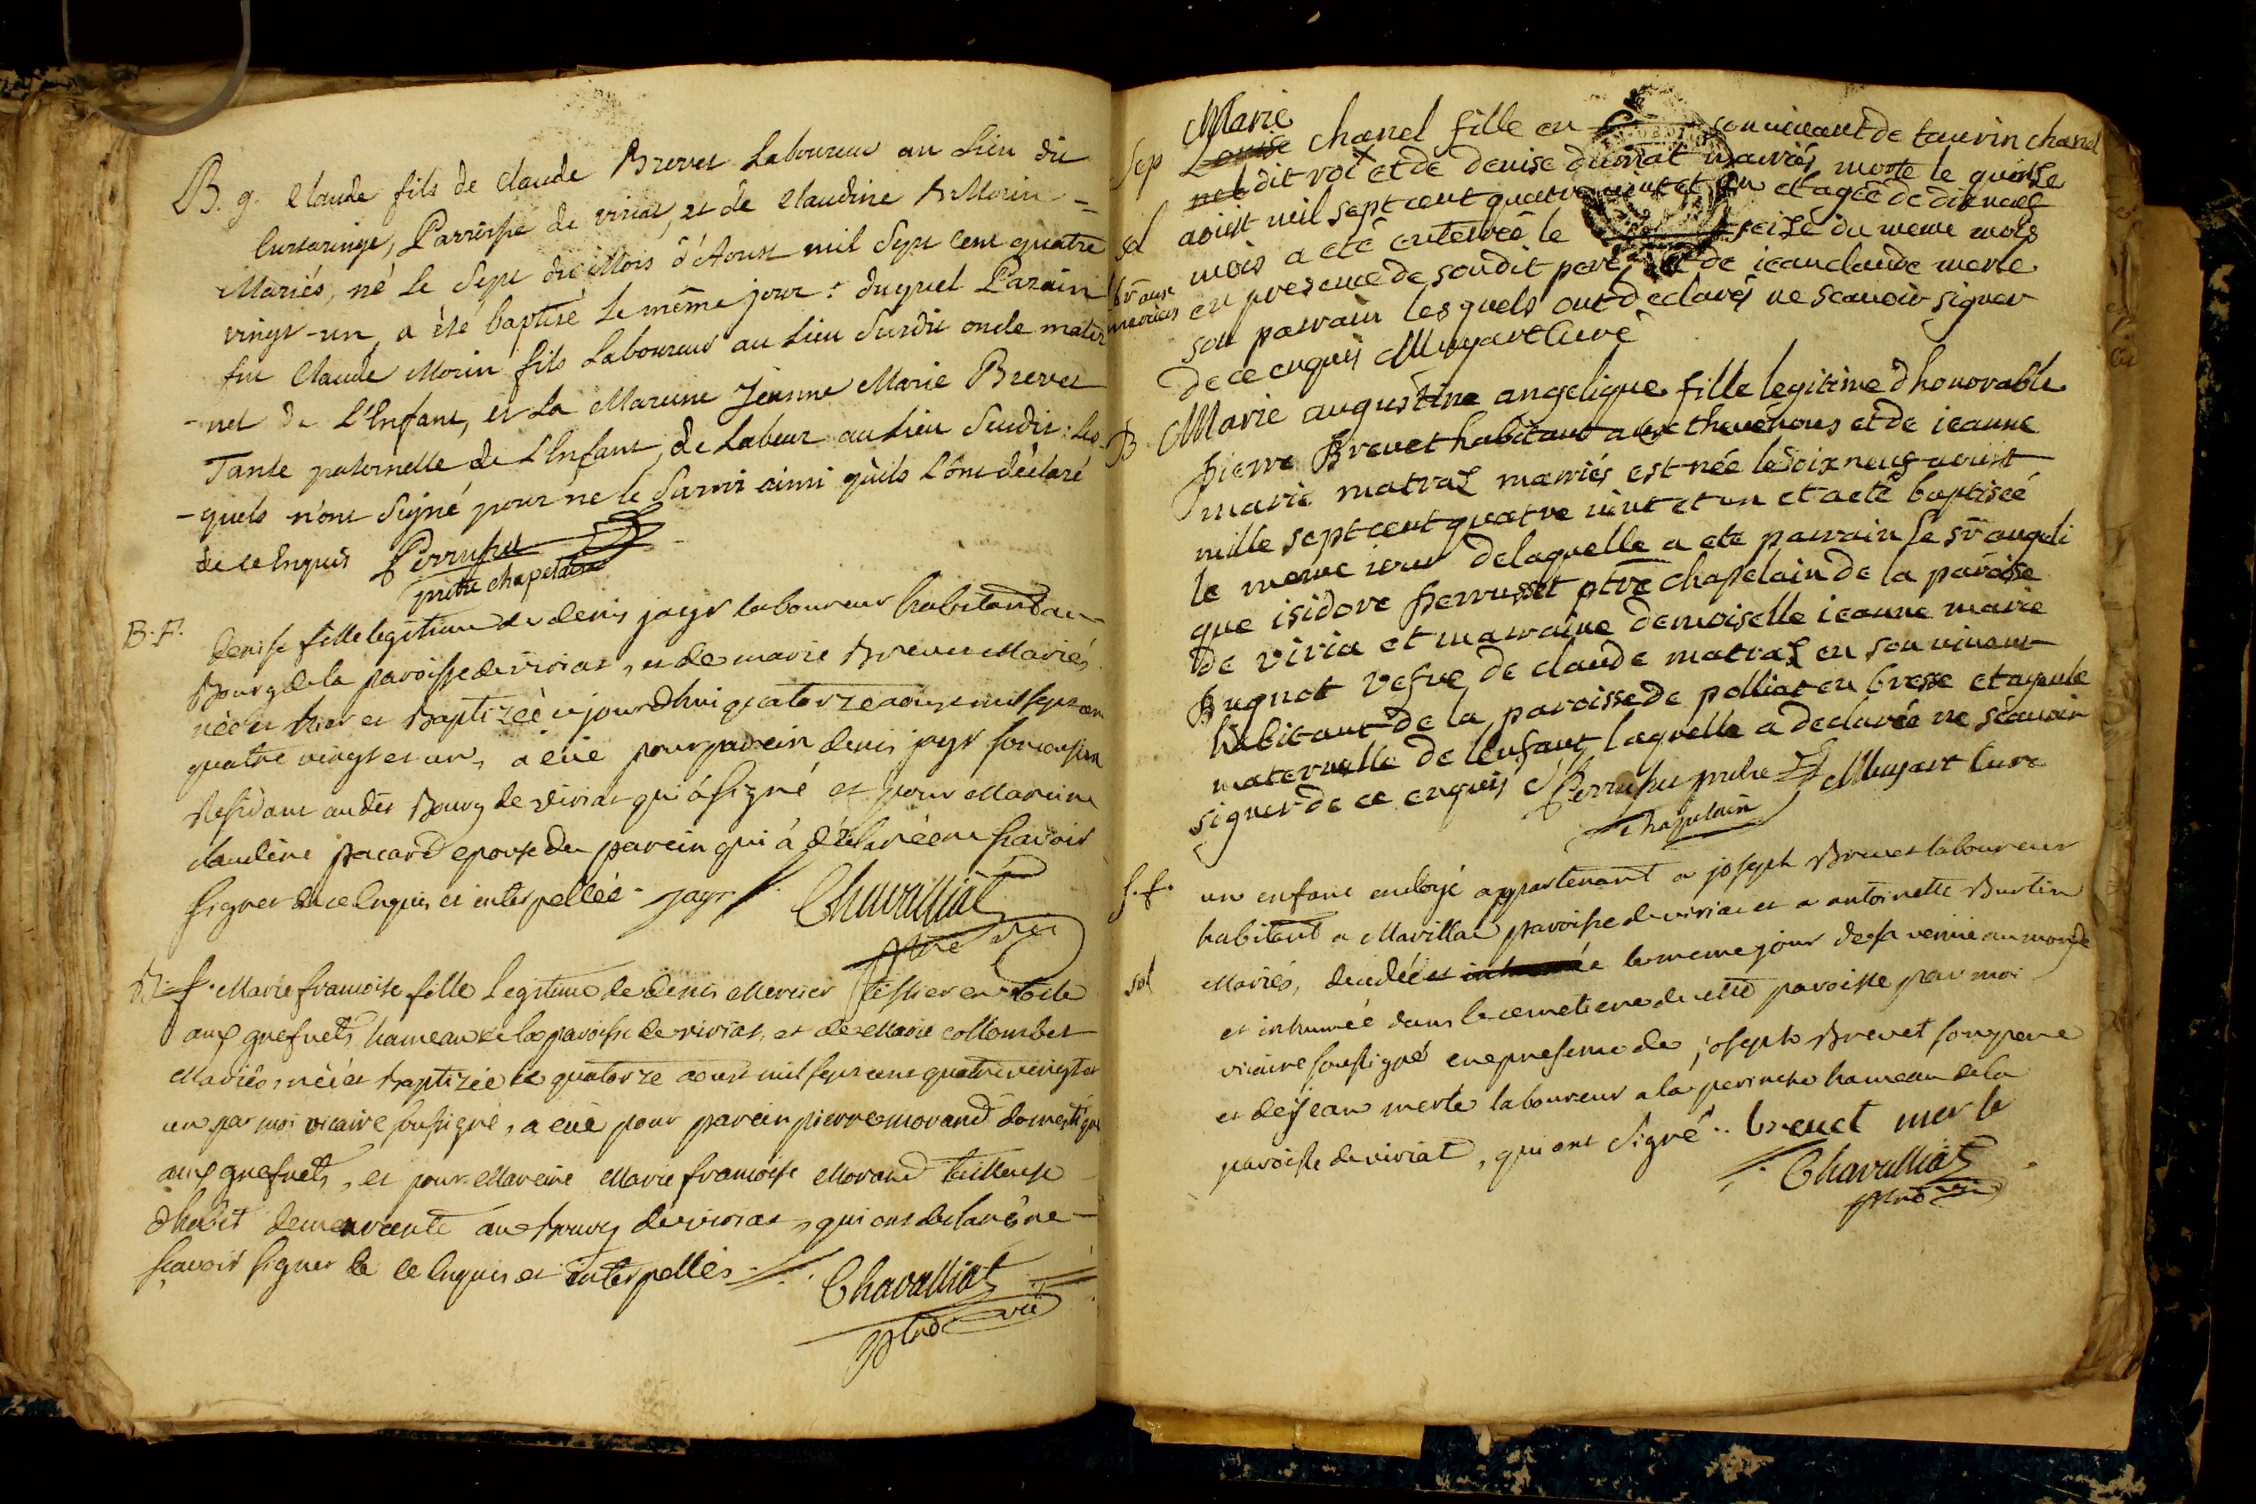 B. g. Claude fils de Claude Brevet Laboureur au Lieu dit
Curtaringe, Parroisse de viriat, et de Claudine Morin =
Mariés, né le Sept du Mois d'Aoust mil Sept Cent quatre
vingt-un, a été baptisé le même jour: duquel Parain
fut Claude Morin fils Laboureur au Lieu Susdit oncle mater
-nel de L'Enfant, et La Mareine Jeanne Marie Brevet
Tante paternelle de L'Enfant, de Labeur au Lieu Susdit: Les
-quels n'ont Signé pour ne le Savoir ainsi qu'ils L'ont déclaré
de ce Enquis Perrusset
prêtre chapelain
B. F. Denise fille legitime de denis jayr laboureur habitant au
Bourg de la paroisse de viriat, et de marie Brevet Mariés
née hier et Baptizée ce jourdhui quatorze aoust mil sept cent
quatre vingt et un, a eüe pour parein denis jayr son cousin
Residant au dit Bourg de viriat qui á signé et pour Mareine
claudine pacard epouse du parein qui á déclarée ne scavoir
signer de ce Enquis et interpellée jayr Chavalliat
ptre vic
B. f. Marie francoise fille Legitime de Denis Mercier tissier en toile
aux grefnets hameau de la paroisse de viriat, et de Marie collombet
Mariés, née et baptizée le quatorze aoust mil sept cent quatre vingt et
un par moi vicaire soussigné, a eüe pour parein pierre morand domestique
aux grefnets, et pour Mareine Marie francoise Morand tailleuse
d'habit demeurante au bourg de viriat, qui ont declaré ne
scavoir signer de ce Enquis et interpellés Chavalliat
ptre vic
Marie
Sep Louise chanel fille en son vivant de taurin chanel
nel dit rox et de denise durriat mariés morte le quinse
aoust mil sept cent quatre vint et un et agée de dix neuf
mois a eté enterrée le seise du meme mois
en presence de son dit pere et de jean claude merle
son parrain les quels ont declarés ne scavoir signer
de ce enquis Muyart Curé
B Marie augustine angelique fille legitime d'honorable
pierre Brevet habitant aux thevenons et de jeanne
marie matrax mariés est née le dix neuf aoust
mille sept cent quatre vint et un et a eté baptiseé
le meme jour de laquelle a eté parrain le sr angeli
que isidore perrusset ptre chapelain de la paroisse
de viria et marraine demoiselle jeanne marie
Bugnot vefve de claude matrax en son vivant
habitant de la paroisse de polliat en bresse et ayeule
maternelle de lenfant laquelle a declarée ne scavoir
signer de ce enquis Perrusset prêtre Muyart Curé
Chapelain
S. f. un enfant endoyé appartenant a joseph Brevet laboureur
habitant a Marillat paroisse de viriat et a antoinette Burtin
sol Mariés, decedée et le meme jour de sa venüe au monde
et inhumée dans le cemetiere de cette paroisse par moi
vicaire soussigné en presence de joseph Brevet son pere
et de jean merle laboureur a la perinche hameau de la
paroisse de viriat, qui ont Signé brevet merle
Chavalliat
ptre vic